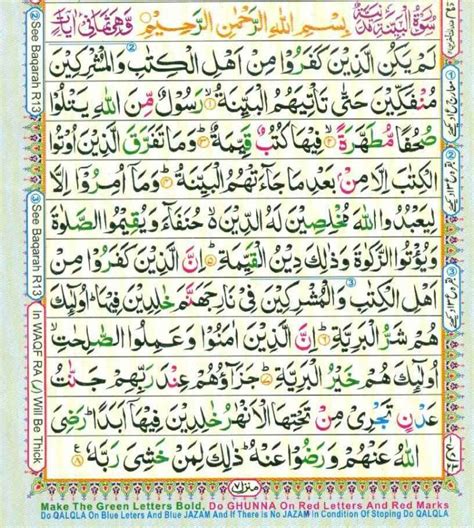 سُوْرَةُ الْبَيِّنَةِ مَدَنِيَّةٌ بِسْمِ اللّٰهِ الرَّحْمٰنِ الرَّحِيْمِ وَهِيَ ثَمَانِيْ اٰيَاتٍ
لَمْ يَكُنِ الَّذِيْنَ كَفَرُوْا مِنْ اَهْلِ الْكِتٰبِ وَالْمُشْرِكِيْنَ
مُنْفَكِّيْنَ حَتّٰى تَاْتِيَهُمُ الْبَيِّنَةُ ۙ‏﴿۱﴾ رَسُوْلٌ مِّنَ اللّٰهِ يَتْلُوْا
صُحُفًا مُّطَهَّرَةً ۙ‏﴿۲﴾ فِيْهَا كُتُبٌ قَيِّمَةٌ ؕ‏﴿۳﴾ وَمَا تَفَرَّقَ الَّذِيْنَ اُوْتُوا
الْكِتٰبَ اِلَّا مِنْۢ بَعْدِ مَا جَآءَتْهُمُ الْبَيِّنَةُ ؕ‏﴿۴﴾ وَمَاۤ اُمِرُوْۤا اِلَّا
لِيَعْبُدُوا اللّٰهَ مُخْلِصِيْنَ لَهُ الدِّيْنَ ۙ حُنَفَآءَ وَيُقِيْمُوا الصَّلٰوةَ
وَيُؤْتُوا الزَّكٰوةَ وَذٰلِكَ دِيْنُ الْقَيِّمَةِ ؕ‏﴿۵﴾ اِنَّ الَّذِيْنَ كَفَرُوْا مِنْ
اَهْلِ الْكِتٰبِ وَالْمُشْرِكِيْنَ فِيْ نَارِ جَهَنَّمَ خٰلِدِيْنَ فِيْهَا ؕ اُولٰٓئِكَ
هُمْ شَرُّ الْبَرِيَّةِ ؕ‏﴿۶﴾ اِنَّ الَّذِيْنَ اٰمَنُوْا وَعَمِلُوا الصّٰلِحٰتِ ۙ
اُولٰٓئِكَ هُمْ خَيْرُ الْبَرِيَّةِ ؕ‏﴿۷﴾ جَزَآؤُهُمْ عِنْدَ رَبِّهِمْ جَنّٰتُ
عَدْنٍ تَجْرِيْ مِنْ تَحْتِهَا الْاَنْهٰرُ خٰلِدِيْنَ فِيْهَاۤ اَبَدًا ؕ رَضِيَ
اللّٰهُ عَنْهُمْ وَرَضُوْا عَنْهُ ؕ ذٰلِكَ لِمَنْ خَشِيَ رَبَّهٗ ﴿۸﴾ ع
منزل ۷
Make The Green Letters Bold, Do GHUNNA On Red Letters And Red Marks
Do QALQLA On Blue Leters And Blue JAZAM And If There is No JAZAM In Condition Of Stoping Do QALQLA
② See Baqarah R13
③ See Baqarah R13
In WAQF RA (ر) Will Be Thick